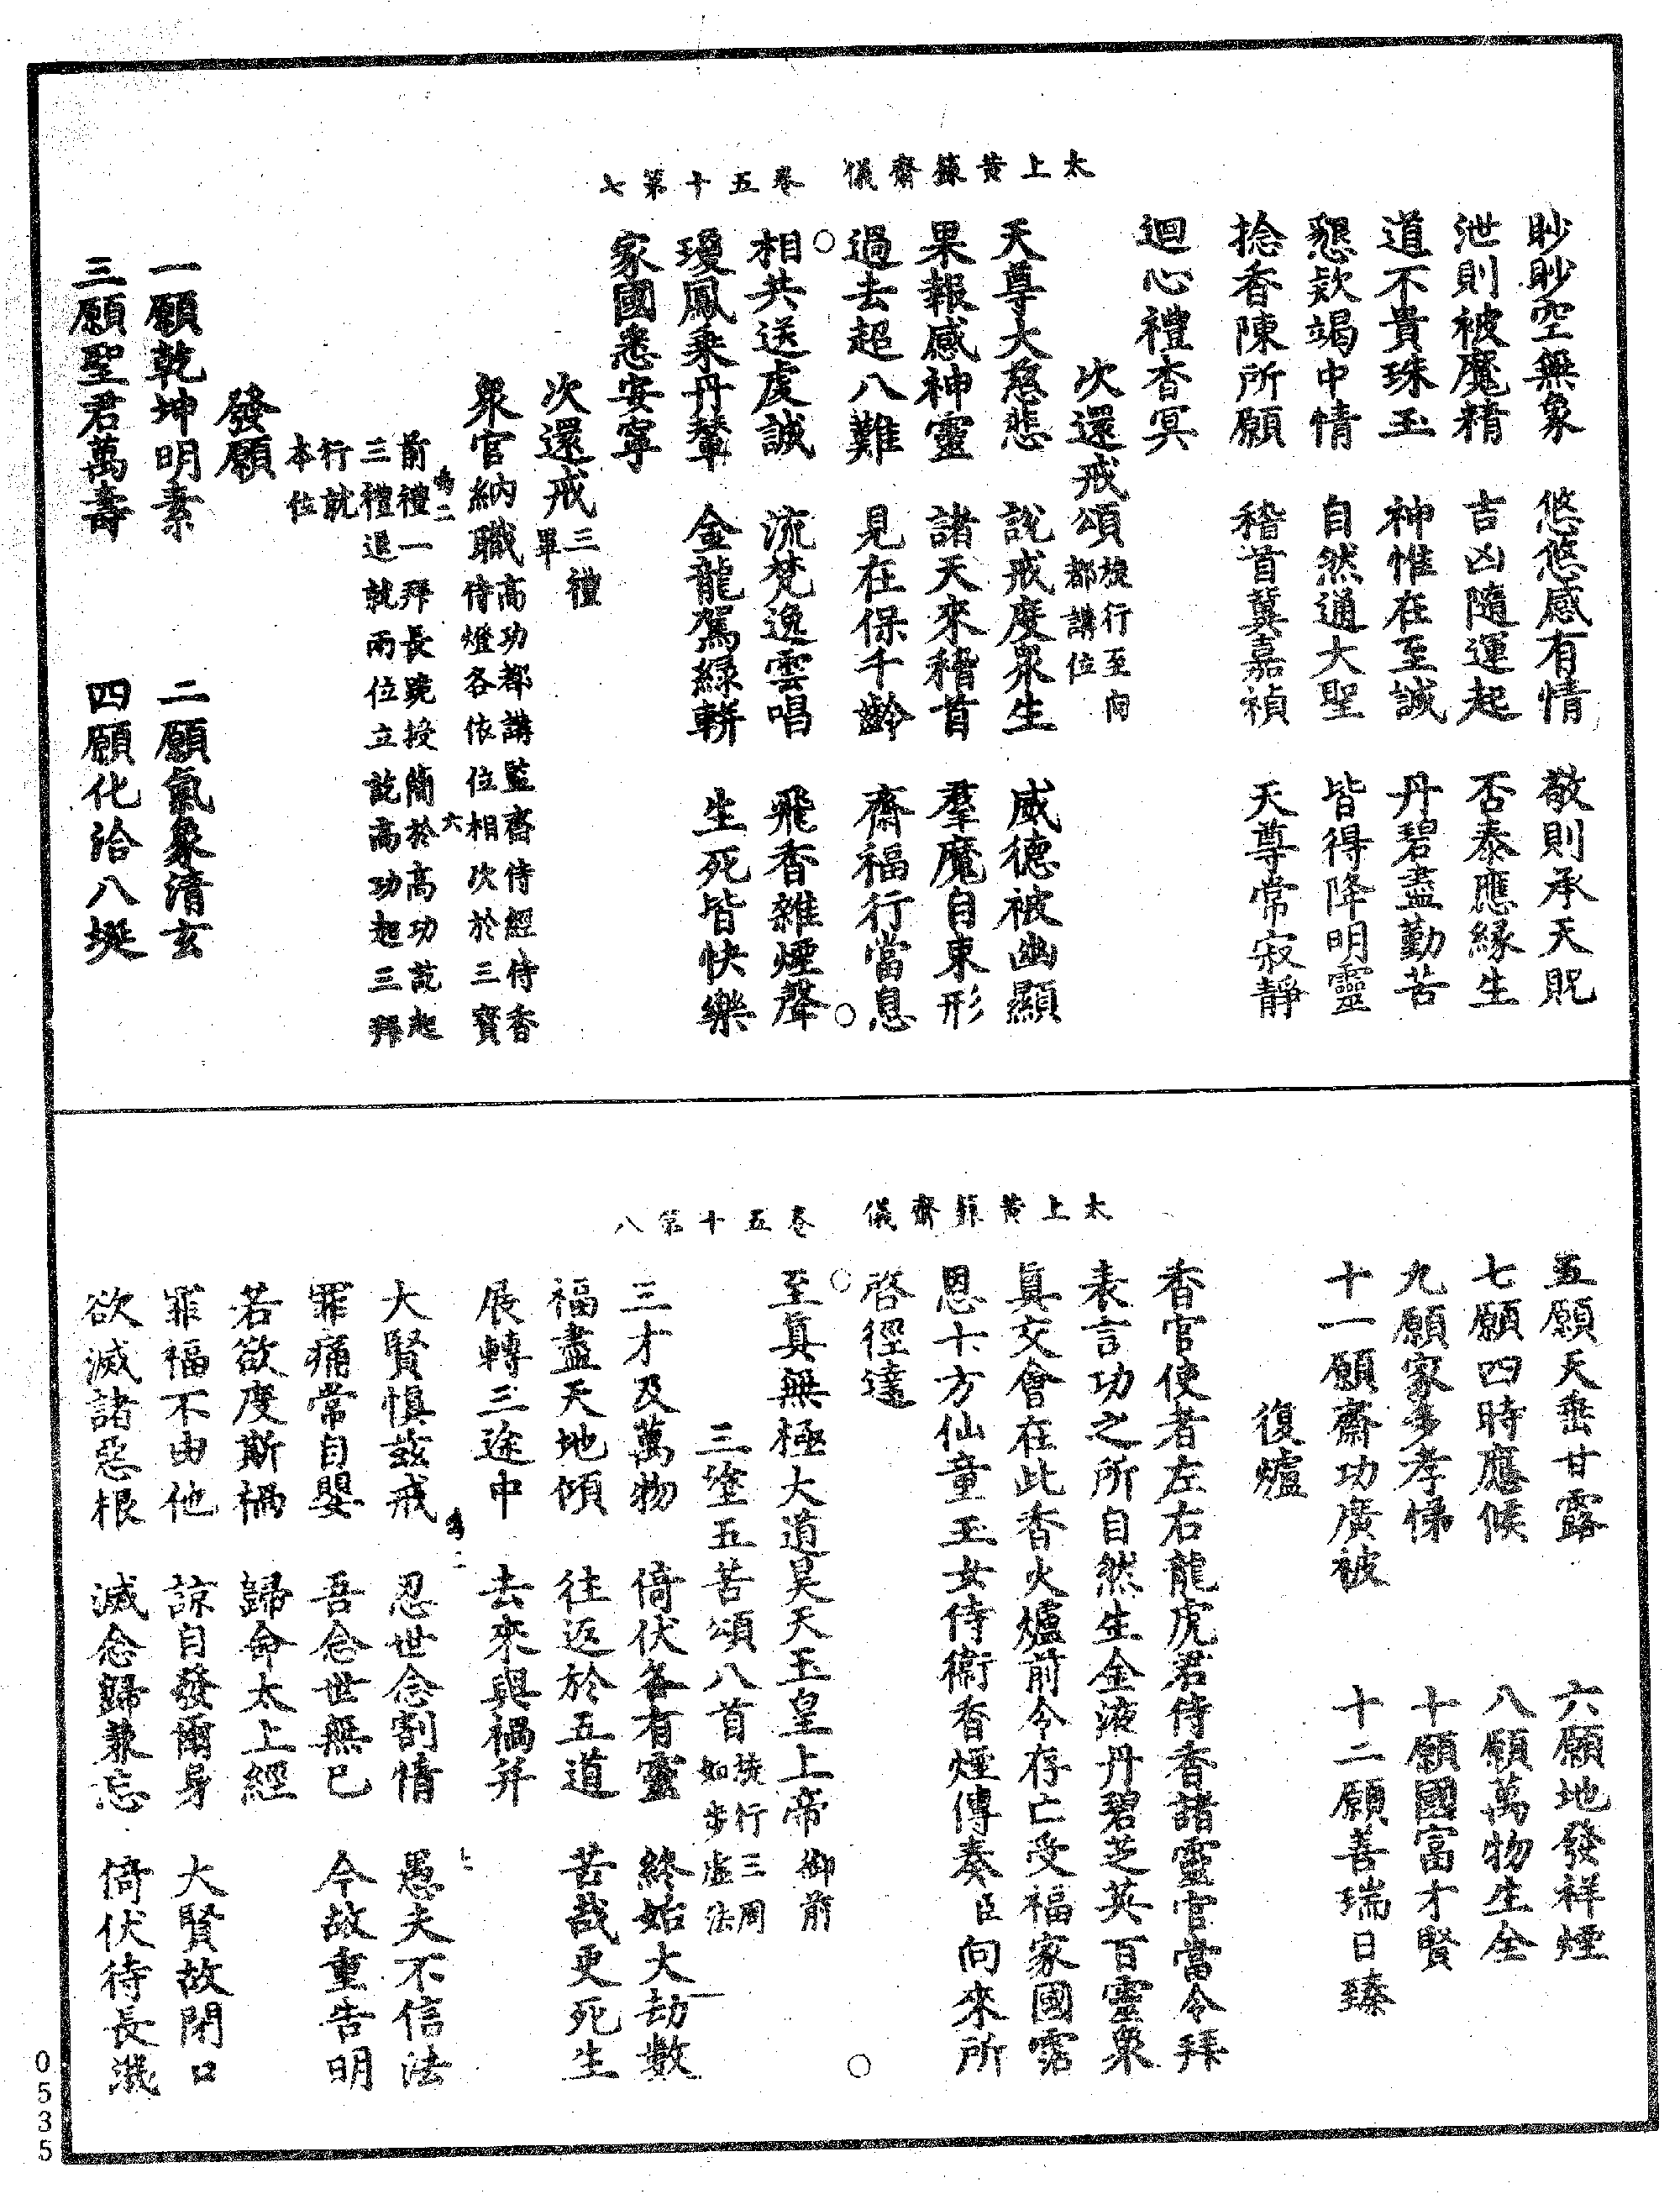 太上黃籙齋儀　卷五十第七
眇眇空無象　悠悠感有情　敬則承天貺
泄則被魔精　吉凶隨運起　否泰應緣生
道不貴珠玉　神惟在至誠　丹碧盡勤苦
懇款竭中情　自然通大聖　皆得降明靈
捻香陳所願　稽首冀嘉禎　天尊常寂靜
迴心禮杳冥
次還戒頌旋行至向都講位
天尊大慈悲　說戒度衆生　威德被幽顯
果報感神靈　諸天來稽首　羣魔自束形
過去超八難　見在保千齡　齋福行當息
相共送虔誠　流梵逸雲唱　飛香雜煙聲
瓊鳳乘丹輦　金龍駕綠軿　生死皆快樂
家國悉安寧
次還戒三禮畢
衆官納職高功都講監齋侍經侍香侍燈各依位相次於三寶
前禮一拜長跪授簡於高功訖起三禮退就兩位立訖高功起三拜
行就本位
發願
一願乾坤明素　二願氣象清玄
三願聖君萬壽　四願化洽八埏
太上黃籙齋儀　卷五十第八
五願天垂甘露　六願地發祥煙
七願四時應候　八願萬物生全
九願家多孝悌　十願國富才賢
十一願齋功廣被　十二願善瑞日臻
復爐
香官使者左右龍虎君侍香諸靈官當令拜
表言功之所自然生金液丹碧芝英百靈衆
眞交會在此香火爐前令存亡受福家國霑
恩十方仙童玉女侍衞香煙傳奏臣向來所
啓徑達
至眞無極大道昊天玉皇上帝御前
三塗五苦頌八首旋行三周如步虛法
三才及萬物　倚伏各有靈　終始大劫數
福盡天地傾　往返於五道　苦哉更死生
展轉三途中　去來與禍并
大賢惧茲戒　忍世念割情　愚夫不信法
罪痛常自嬰　吾念世無已　今故重告明
若欲度斯禍　歸命太上經
罪福不由他　諒自發爾身　大賢故閉口
欲滅諸惡根　滅念歸兼忘　倚伏待長溅
0535